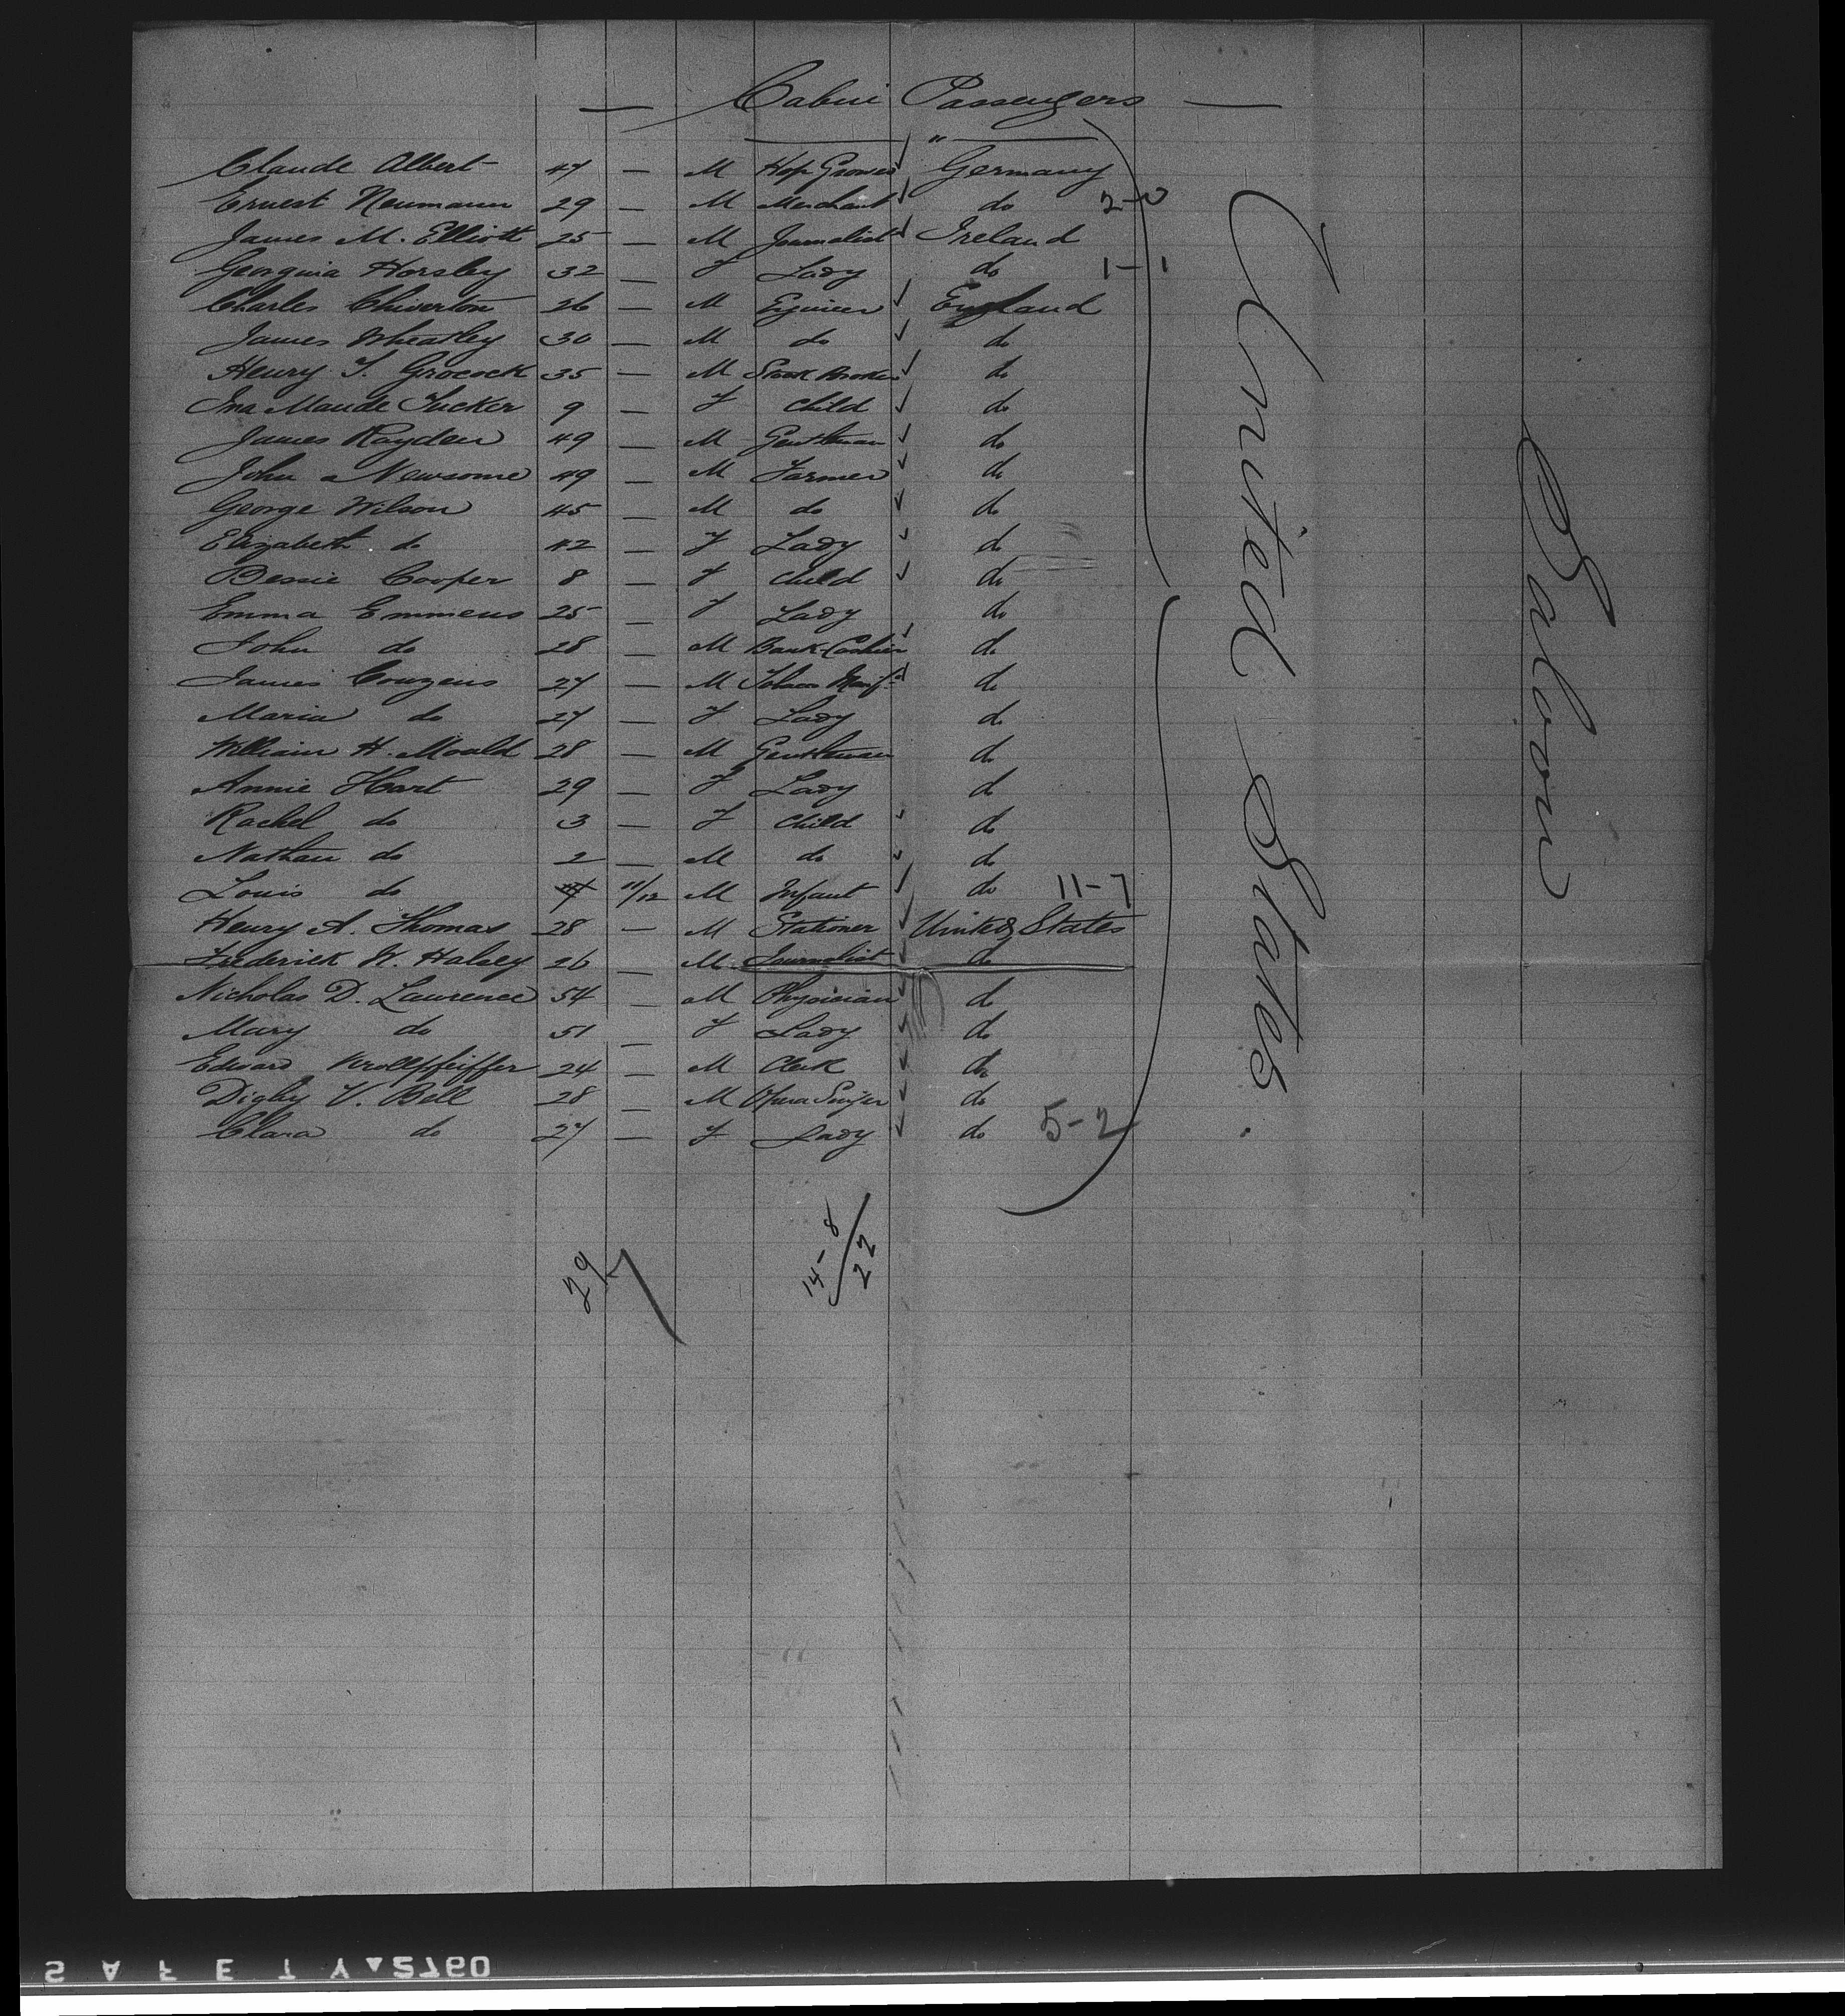 — Cabin Passengers —
"
Claude Albert 47 — M Hop Grower Germany
Ernest Neumann 29 — M Merchant do 2-0
James M. Elliott 25 — M Journalist Ireland
Georgina Horsley 32 — F Lady do 1-1
Charles Chiverton 26 — M Egineer England
James Wheatley 30 — M do do
Henry T. Grocock 35 — M Stock Broker do
Ina Maude Tucker 9 — F Child do
James Rayden 49 — M Gentleman do
John Newsome 49 — M Farmer do
George Wilson 45 — M do do
Elizabeth do 42 — F Lady do
Bessie Cooper 8 — F Child do
Emma Emmens 25 — F Lady do
John do 28 — M Bank Cashier do
James Couzens 27 — M Tobacco Manfr do
Maria do 27 — F Lady do
William H. Mould 28 — M Gentleman do
Annie Hart 29 — F Lady do
Rachel do 3 — F Child do
Nathan do 2 — M do do
Louis do 11/12 M Infant do 11-7
Henry A. Thomas 28 — M Stationer United States
Frederick W. Halsey 26 — M Journalist do
Nicholas D. Laurence 54 — M Physician do
Mary do 51 — F Lady do
Edward Krollpfeiffer 24 — M Clerk do
Digby V. Bell 28 — M Opera Singer do
Clara do 27 — F Lady do 5-2
United States.
Saloon
29/7
14-8/22
SAFETY▲2760